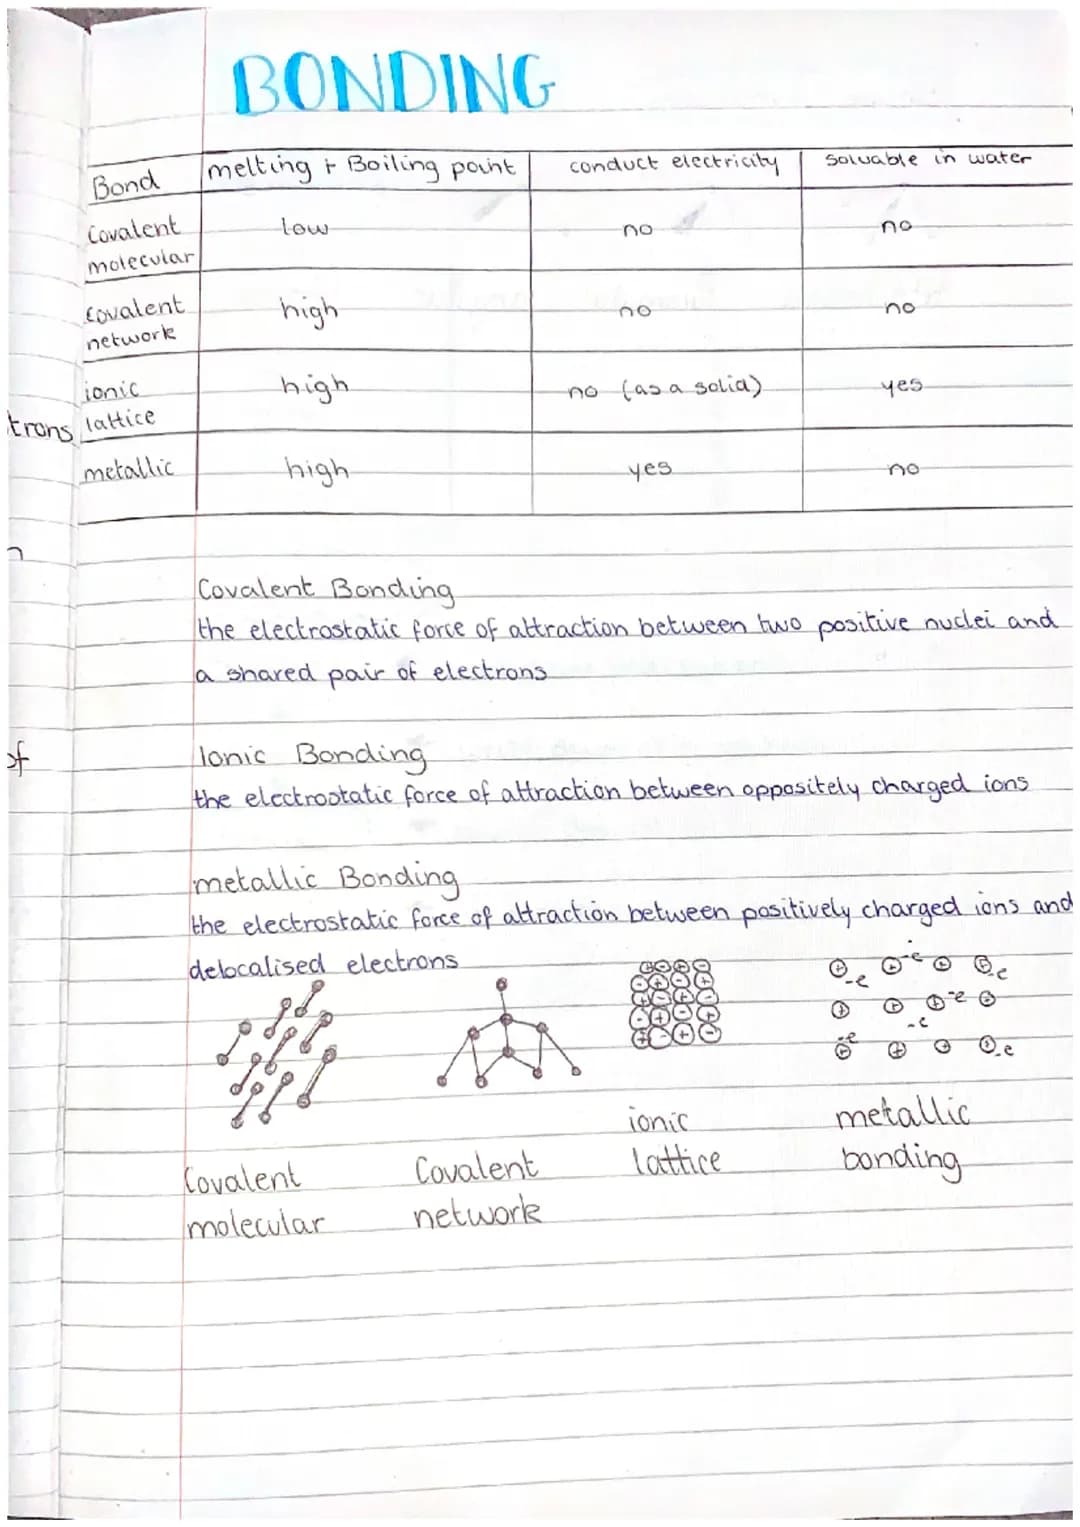 BONDING
Bond melting + Boiling point conduct electricity soluable in water
Covalent molecular low no no
Covalent network high no no
ionic lattice high no (as a solid) yes
trons
metallic high yes no
Covalent Bonding
the electrostatic force of attraction between two positive nuclei and
a shared pair of electrons
of
Ionic Bonding
the electrostatic force of attraction between oppositely charged ions
metallic Bonding
the electrostatic force of attraction between positively charged ions and
delocalised electrons
Covalent molecular
Covalent network
ionic lattice
metallic bonding